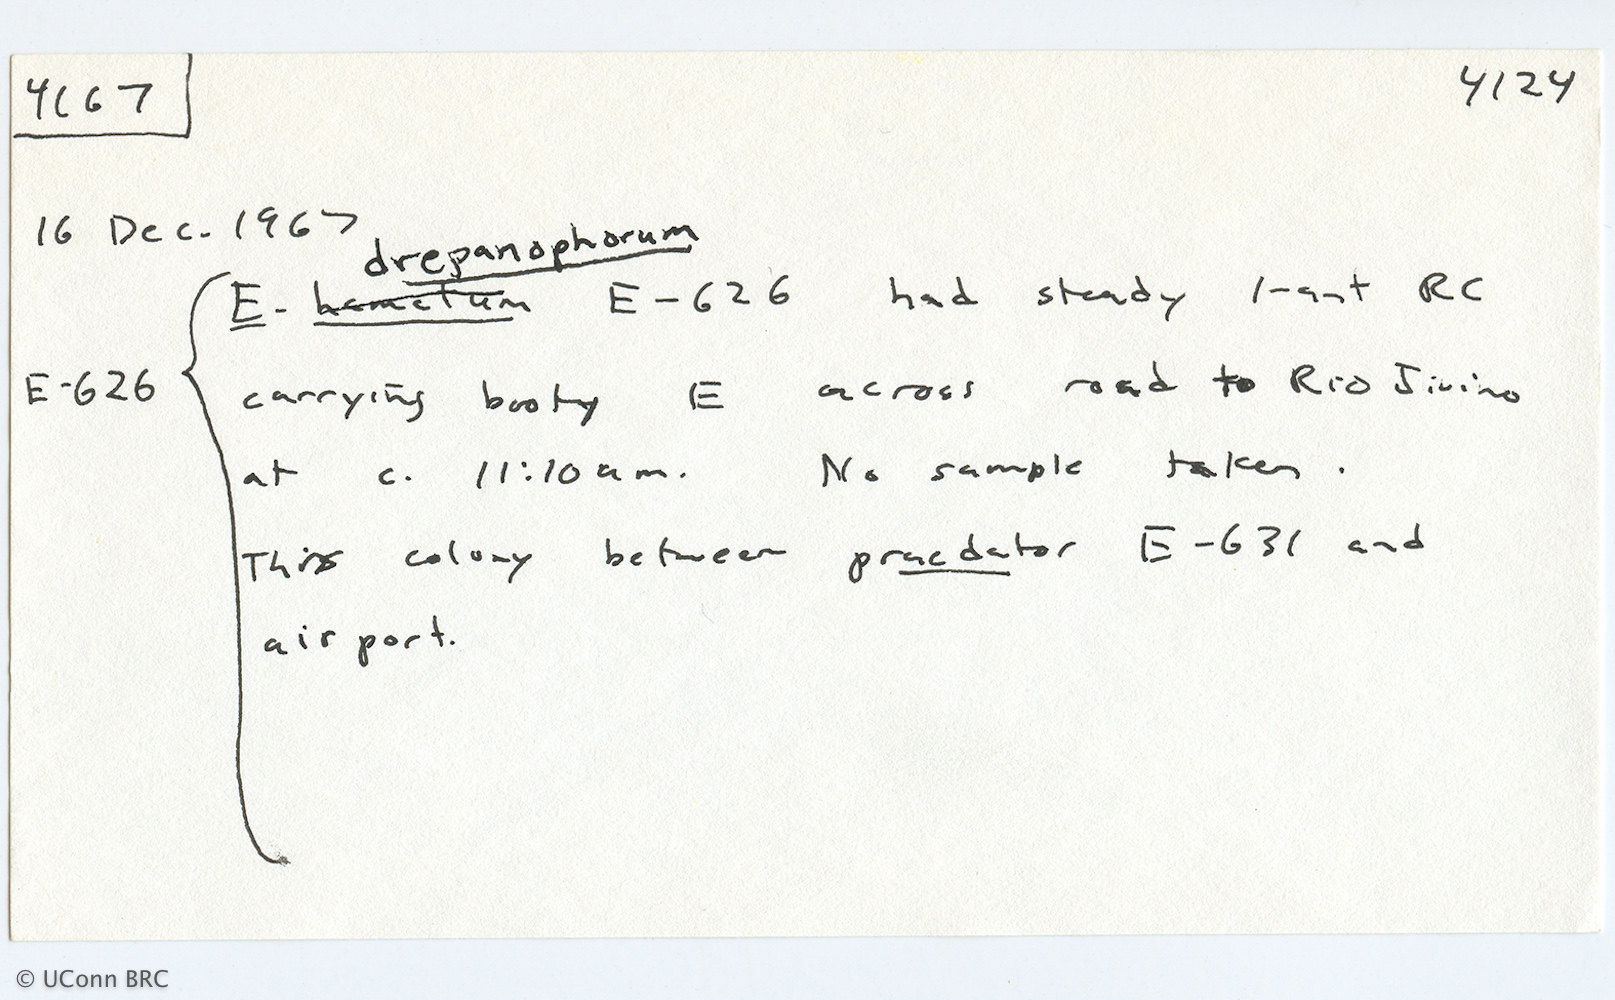 4167
4124
16 Dec. 1967
drepanophorum
E. hamatum E-626 had steady 1-ant RC
E-626
carrying booty E across road to Rio Jivino
at c. 11:10 am. No sample taken.
This colony between praedator E-631 and
airport.
© UConn BRC